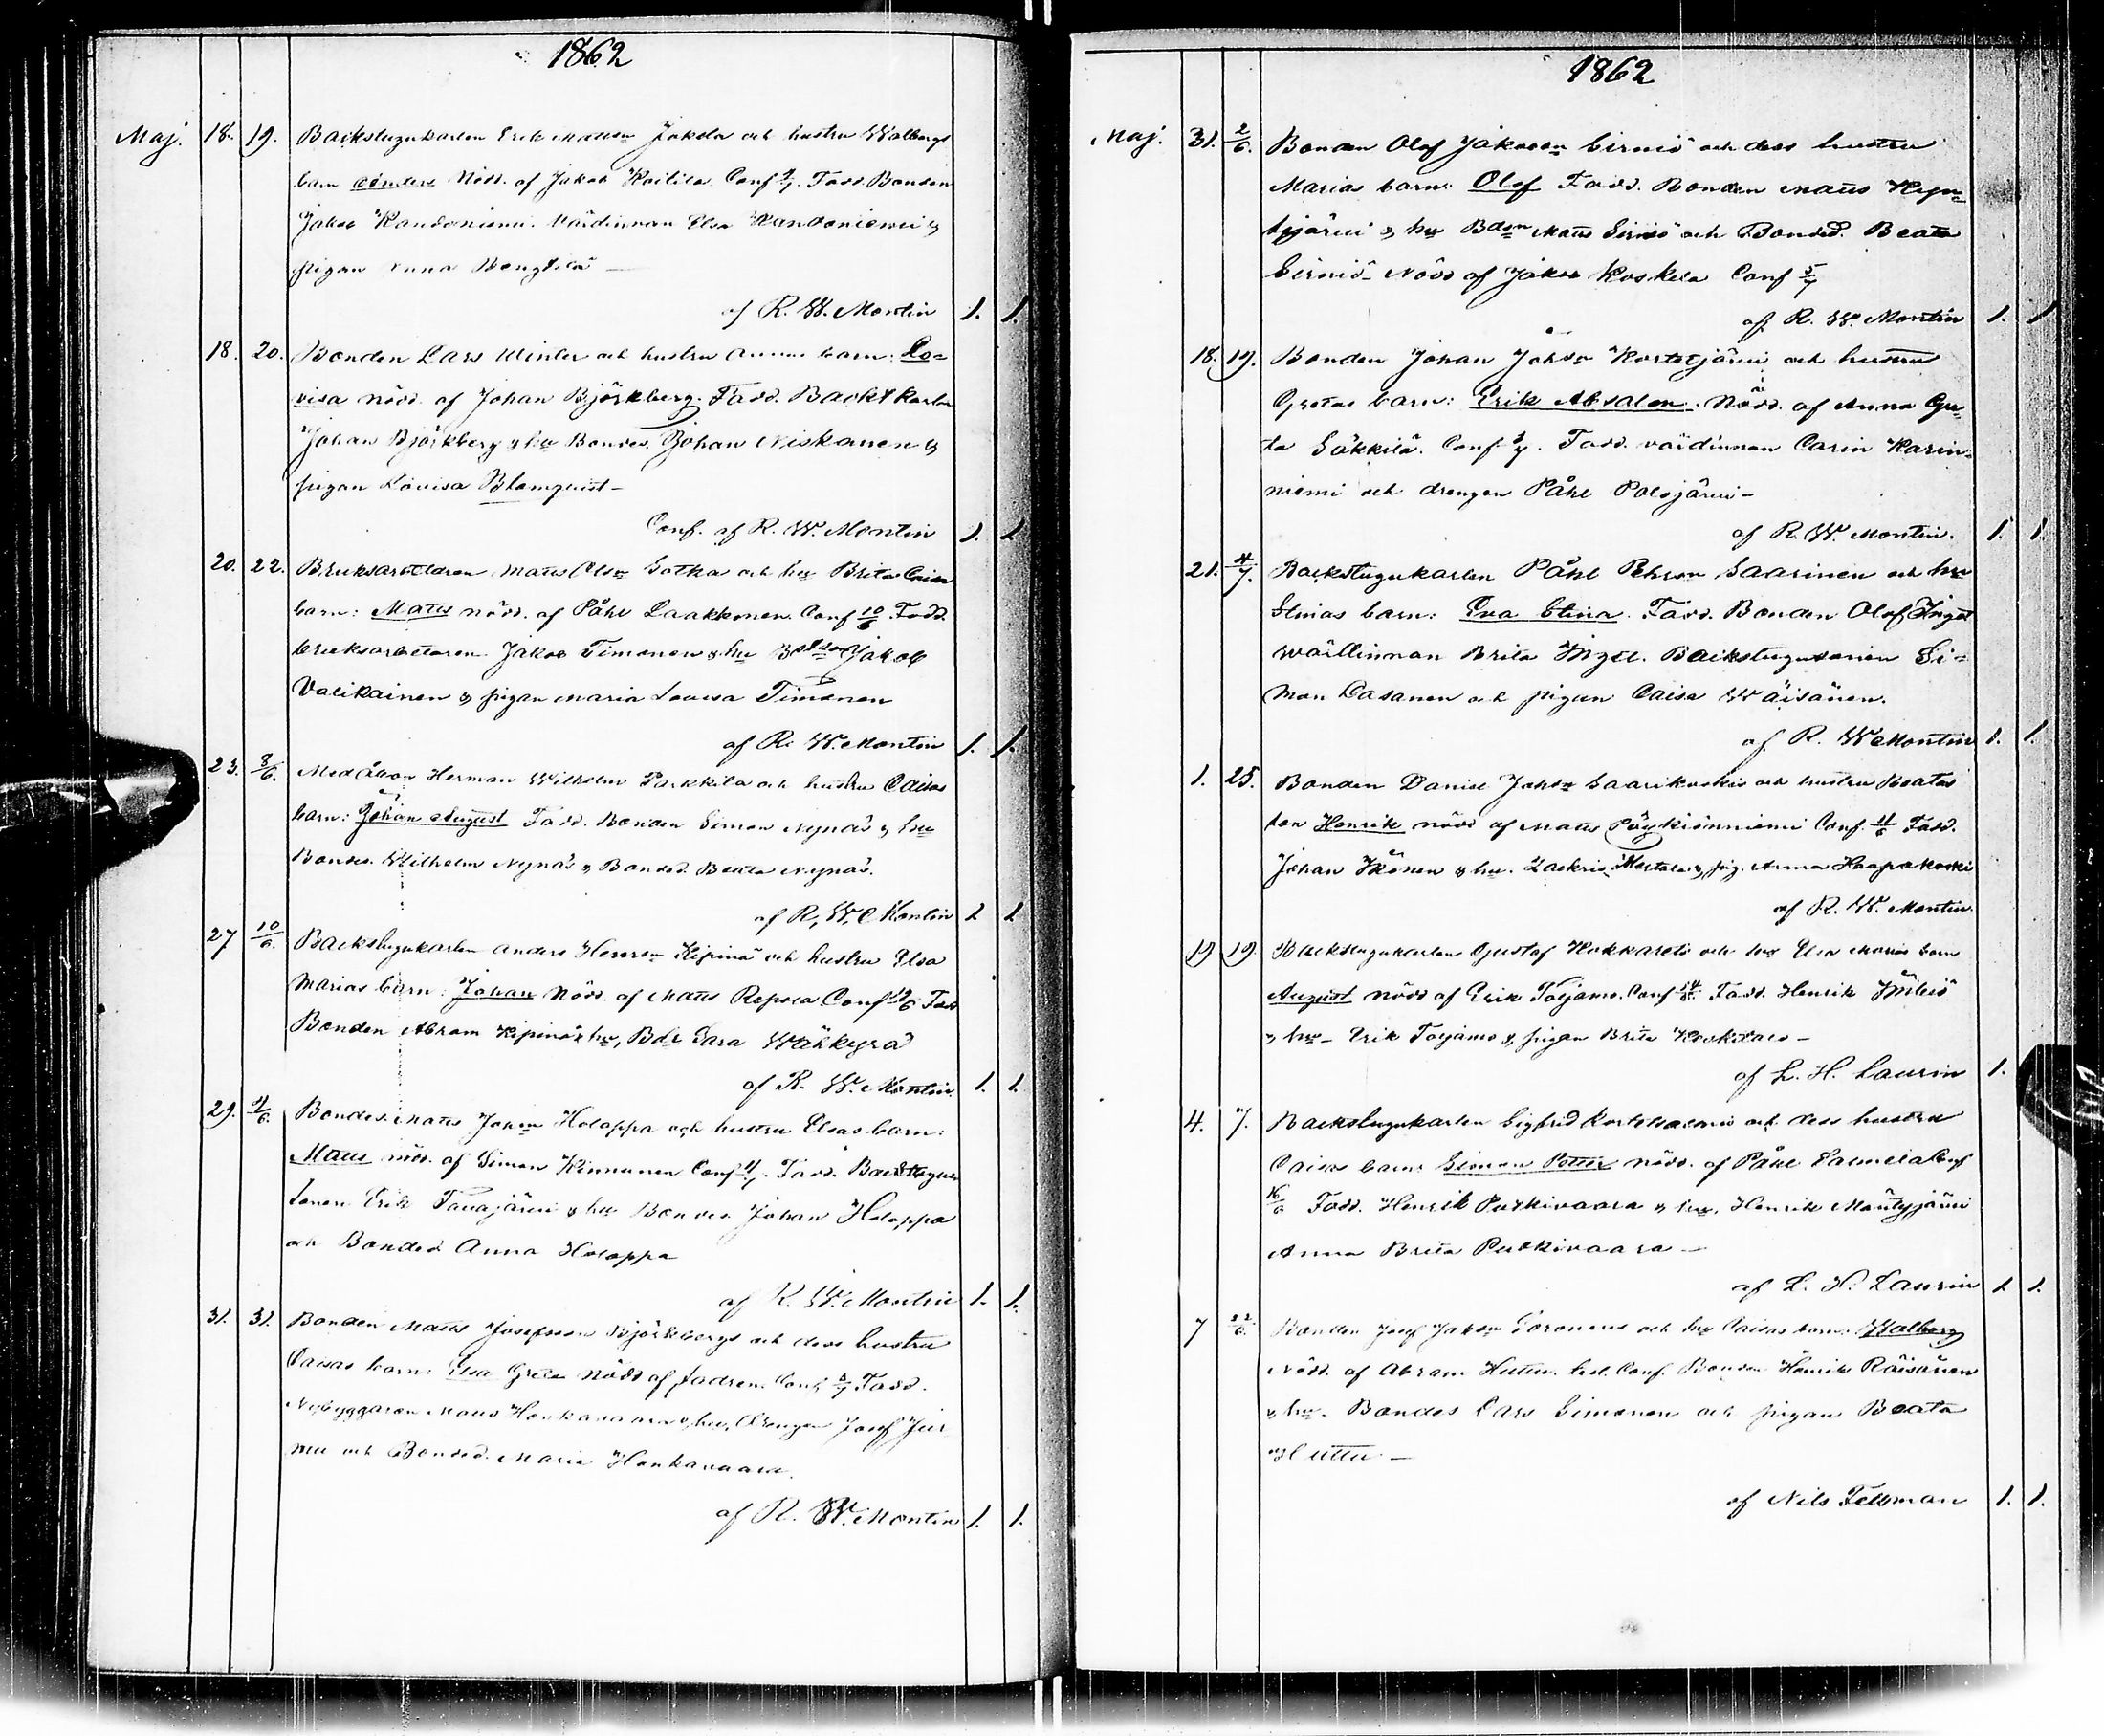 1862
Maj. 18. 19. Backstugukarlen Erik Matssn Jokela och hustru Walborgs
barn Anders Nödd. af Jakob Koilila Conf Fadd. Bonden
Jakob Kandoniemi. Värdinnan Elsa Kandoniemi &
pigan Anna Bengtilä —
af R. W. Montin 1. 1.
18. 20. Bonden Lars Winter och hustru Annas barn: Lo-
visa nödd. af Johan Björkberg. Fadd. Backst karlen
Johan Björkberg & hu Bondes. Johan Niskanen &
pigan Lovisa Blomquist —
Conf. af R. W. Montin 1. 1.
20. 22. Bruksarbetaren Matts Olsn Sotka och hu Brita Caisas
barn: Matts nödd. af Påhl Laakkonen. Conf 10/6. Fadd.
bruksarbetaren Jakob Timonen & hu Jakob
Valikainen & pigan Maria Lovisa Timonen
af R. W. Montin 1. 1.
23. 8/6. Med Åbon Herman Wilhelm Parkkila och hustru Caisas
barn: Johan August Fadd. Bonden Simon Nynäs & hu
Bondes. Wilhelm Nynäs & Bonded. Beata Nynäs.
af R. W. Montin 1 1
27 10/6. Backstugukarlen Anders Hansson Kipinä och hustru Elsa
Marias barn: Johan Nödd. af Matts Repola Conf Fadd
Bonden Abram Kipinä & hu, Bdr Sara Wähkyrä
af R. W. Montin. 1. 1.
29. 9/6. Bondes. Matts Johssn Holappa och hustru Elsas barn:
Matts nöd. af Simon Kinnunen Conf. Fadd. Backstugu
Erik Tauajärvi & hu Bondes. Johan Holappa
och Bonded Anna Holappa
af R. W. Montin 1. 1.
31. 31. Bonden Matts Josefsson Björkbergs och dess hustru
Caisas barn: Elsa Greta Nödd af fadren. Conf Fadd.
Nybyggaren Matts Honkavaara & hu, Drengen Josef Jur
mu och Bonded. Maria Honkavaara.
af R. W. Montin 1. 1.
1862
Maj. 31. 2/6. Bonden Olof Jakobson Sirniö och dess hustru
Marias barn: Olof Fadd. Bonden Matts Kyn-
sjärvi & hu Bdsn Matts Sirniö och Bonded. Beata
Sirniö. Nödd af Jakob Koskela Conf 5/7
af R. W. Montin 1. 1
18. 19. Bonden Johan Johsn Kortetjärvi och hustru
Gretas barn: Erik Absalon. Nödd. af Anna Gre-
ta Säkkilä. Conf. Fadd. värdinnan Carin Karin-
niemi och drengen Påhl Polojärvi —
af R. W. Montin. 1. 1.
21. 4/7. Backstugukarlen Påhl Pehrson Saarinen och hu
Stinas barn: Eva Stina. Fadd. Bonden Olof Inget
wärdinnan Brita Inget. Backstugusonen Si-
mon Casanen och pigan Caisa Wäisänen.
af R. W Montin 1. 1.
1. 25. Bonden Daniel Johsn Saarikoskis och hustru Beatas
son Henrik nödd af Matts Pöykiönniemi Conf. 11/6 Fadd.
Johan Ikönen & hu. Zackris Mustala, pig. Anna Haapakoski
af R. W. Montin
19 19. Backstugukarlen Gustaf Kokkareds och hu Elsa Marias barn
August nödd af Erik Toljamo. Conf Fadd. Henrik
& hu — Erik Toljamo & pigan Brita Koskitalo —
af L. H. Laurin 1.
4. 7. Backstugukarlen Sigfrid Kortetsaaris och dess hustru
Caisas barn: Simon Petter nödd. af Påhl Salmela Conf
16/6 Fadd. Henrik Putkivaara & hu. Henrik Mäntyjärvi
Anna Brita Putkivaara —
af L. H. Laurin 1. 1.
7 22/6. Bonden Josef Jakssn Soronens och hu Caisas barn: Walborg
Nödd. af Abram Huttu. Conf. Bonden Henrik Räisänen
& hu. Bondes Lars Simonen och pigan Beata
Huttu —
af Nils Fellman 1. 1.